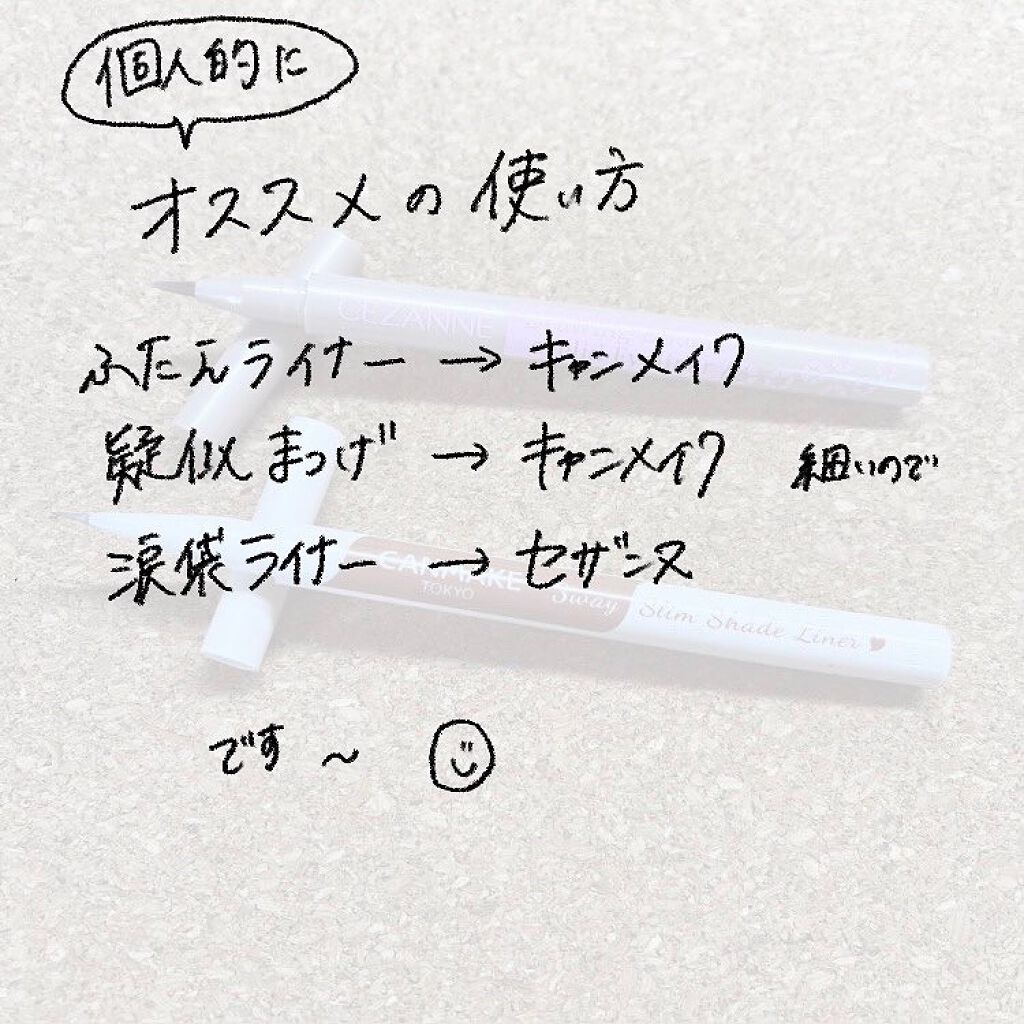 個人的に
オススメの使い方
CEZANNE
ふたえライナー → キャンメイク
疑似まつげ → キャンメイク 細いので
涙袋ライナー → セザンヌ
CANMAKE
TOKYO
3way Slim Shade Liner
です～